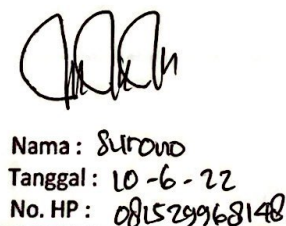 Nama : Surono
Tanggal : 10-6-22
No. HP : 081529968148